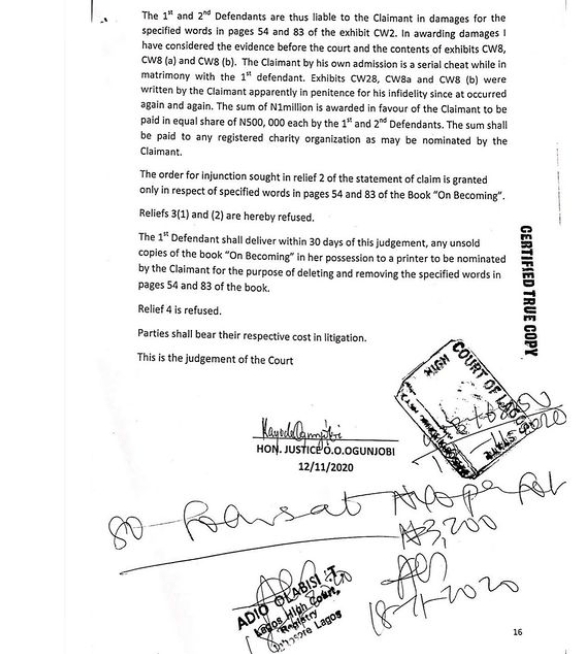 The 1st and 2nd Defendants are thus liable to the Claimant in damages for the
specified words in pages 54 and 83 of the exhibit CW2. In awarding damages I
have considered the evidence before the court and the contents of exhibits CW8,
CW8 (a) and CW8 (b). The Claimant by his own admission is a serial cheat while in
matrimony with the 1st defendant. Exhibits CW28, CW8a and CW8 (b) were
written by the Claimant apparently in penitence for his infidelity since at occurred
again and again. The sum of N1million is awarded in favour of the Claimant to be
paid in equal share of N500, 000 each by the 1st and 2nd Defendants. The sum shall
be paid to any registered charity organization as may be nominated by the
Claimant.
The order for injunction sought in relief 2 of the statement of claim is granted
only in respect of specified words in pages 54 and 83 of the Book "On Becoming".
Reliefs 3(1) and (2) are hereby refused.
The 1st Defendant shall deliver within 30 days of this judgement, any unsold
copies of the book "On Becoming" in her possession to a printer to be nominated
by the Claimant for the purpose of deleting and removing the specified words in
pages 54 and 83 of the book.
Relief 4 is refused.
Parties shall bear their respective cost in litigation.
This is the judgement of the Court
CERTIFIED TRUE COPY
HIGH COURT OF LAGOS
HON. JUSTICE O.O.OGUNJOBI
12/11/2020
₦3,200
ADIO OLABISI .T.
Lagos High Court,
Registry
Lagos
18-11-2020
16